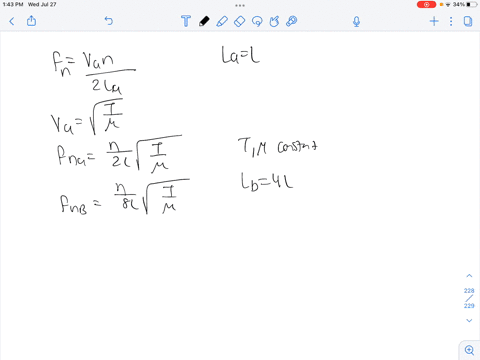 1:43 PM Wed Jul 27
34%
fn = Van / 2La
La = L
Va = √(T/μ)
fna = n/2L √(T/μ)
T, μ constant
fnB = n/8L √(T/μ)
Lb = 4L
228
229